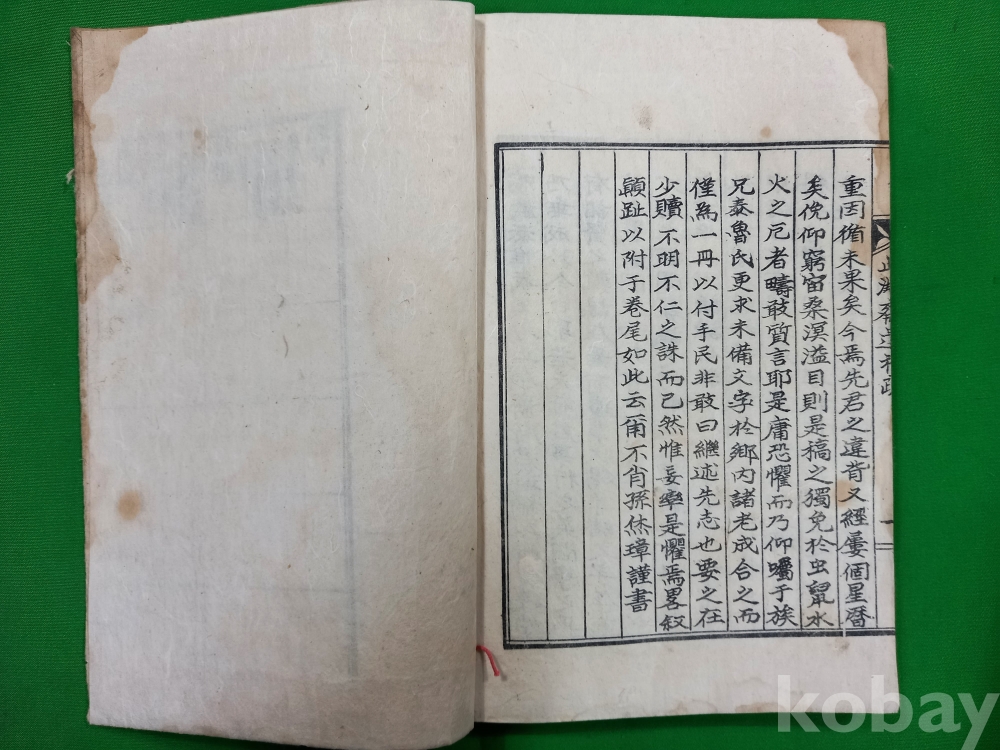 重因循未果矣今焉先君之違背又經屢個星曆
矣俛仰窮宙桑溟溢目則是稿之獨免於虫鼠水
火之厄者疇敢質言耶是庸恐懼而乃仰囑于族
兄泰魯氏更求未備文字於鄉內諸老成合之而
僅爲一冊以付手民非敢曰繼述先志也要之在
少贖不明不仁之誅而已然惟妄率是懼焉畧叙
顚趾以附于卷尾如此云爾不肖孫烋璋謹書
遺稿跋
kobay